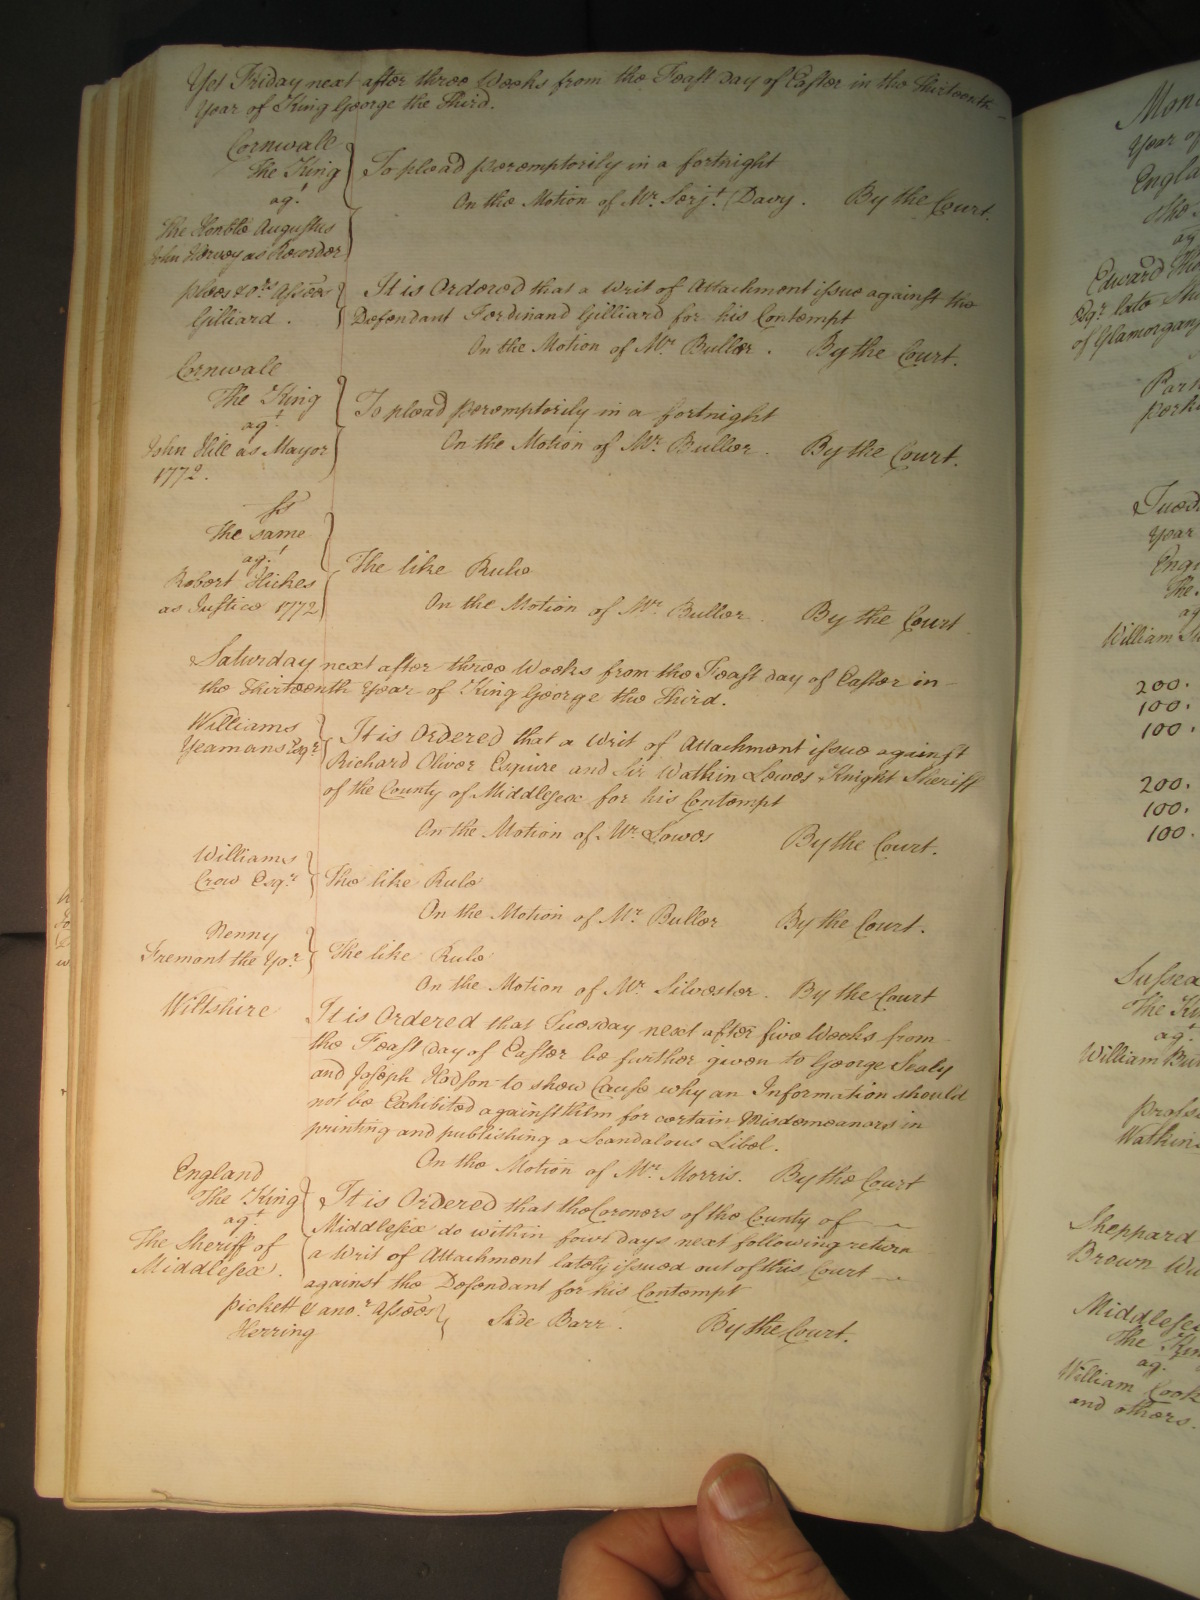 Yet Friday next after three Weeks from the Feast Day of Easter in the Thirteenth
Year of King George the Third.
Cornwall
The King
agt
The Honble Augustus
John Hervey as Recorder
To plead peremptorily in a fortnight
On the Motion of Mr. Serjt. Davy. By the Court.
Gilliard.
It is Ordered that a Writ of Attachment issue against the
Defendant Ferdinand Gilliard for his Contempt
On the Motion of Mr. Buller. By the Court.
Cornwall
The King
agt
John Hill as Mayor
1772.
To plead peremptorily in a fortnight
On the Motion of Mr. Buller. By the Court.
The same
agt
Robert Hickes
as Justice 1772
The like Rule
On the Motion of Mr. Buller. By the Court
Saturday next after three Weeks from the Feast day of Easter in
the Thirteenth Year of King George the Third.
Williams
Yeamans Esqr.
It is Ordered that a Writ of Attachment issue against
Richard Oliver Esquire and Sir Watkin Lewes Knight Sheriff
of the County of Middlesex for his Contempt
On the Motion of Mr. Lowes By the Court.
Williams
Crow Esqr.
The like Rule
On the Motion of Mr. Buller By the Court.
Nenny
Fremont the Yor.
The like Rule
On the Motion of Mr. Silvester. By the Court
Wiltshire
It is Ordered that Tuesday next after five Weeks from
the Feast Day of Easter be further given to George Sealy
and Joseph Hodson to shew Cause why an Information should
not be Exhibited against them for certain Misdemeanors in
printing and publishing a Scandalous Libel.
On the Motion of Mr. Morris. By the Court
England
The King
agt
The Sheriff of
Middlesex.
It is Ordered that the Coroners of the County of
Middlesex do within four days next following return
a Writ of Attachment lately issued out of this Court
against the Defendant for his Contempt
Pickett & anor. Assees
Herring
Side Barr. By the Court.
Year of
Edward
Esqr. late
of Glamorgan
Year
William
200.
100.
100.
200.
100.
100.
Sussex
The
agt
William
Watkins
Sheppard
Brown
Middlesex
The King
agt
William Cook
and others.